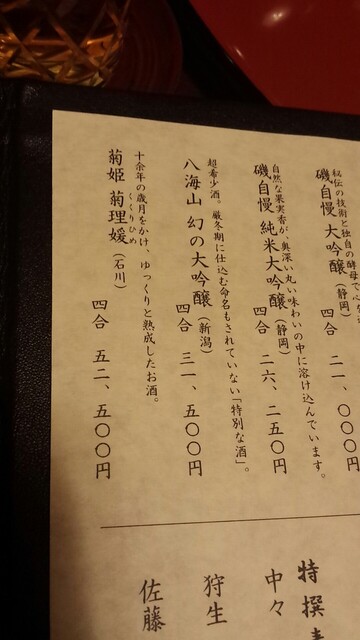 秘伝の技術と独自の酵母で
磯自慢 大吟醸(静岡)
四合 二一、〇〇〇円
自然な果実香が、奥深い丸い味わいの中に溶け込んでいます。
磯自慢 純米大吟醸(静岡)
四合 二六、二五〇円
超希少酒。厳冬期に仕込む命名もされていない「特別な酒」。
八海山 幻の大吟醸(新潟)
四合 三一、五〇〇円
十余年の歳月をかけ、ゆっくりと熟成したお酒。
菊姫 菊理媛(石川)
くくりひめ
四合 五二、五〇〇円
特撰
中々
狩生
佐藤